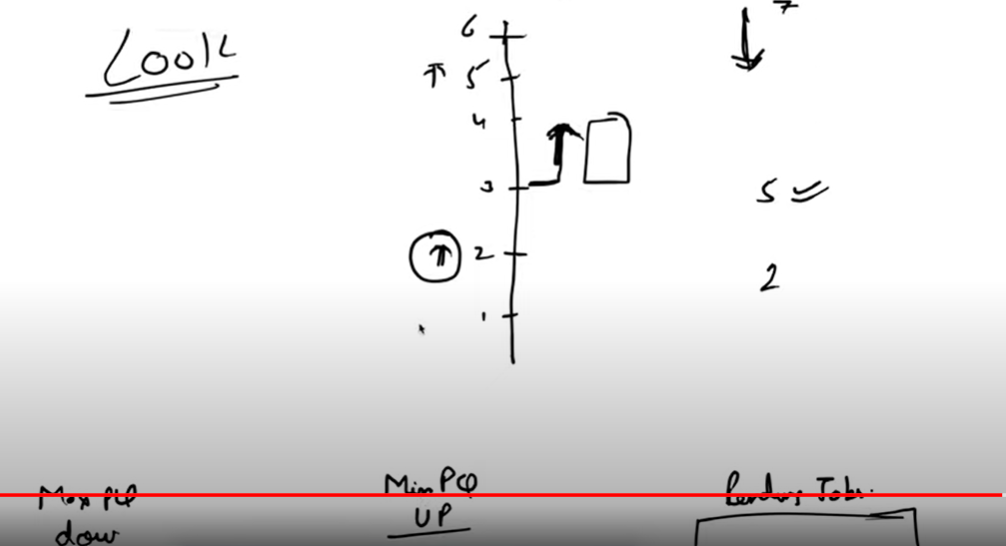 LOOK
6
7
5
4
3
5
2
2
1
Max PQ
down
Min PQ
UP
Pending Jobs.